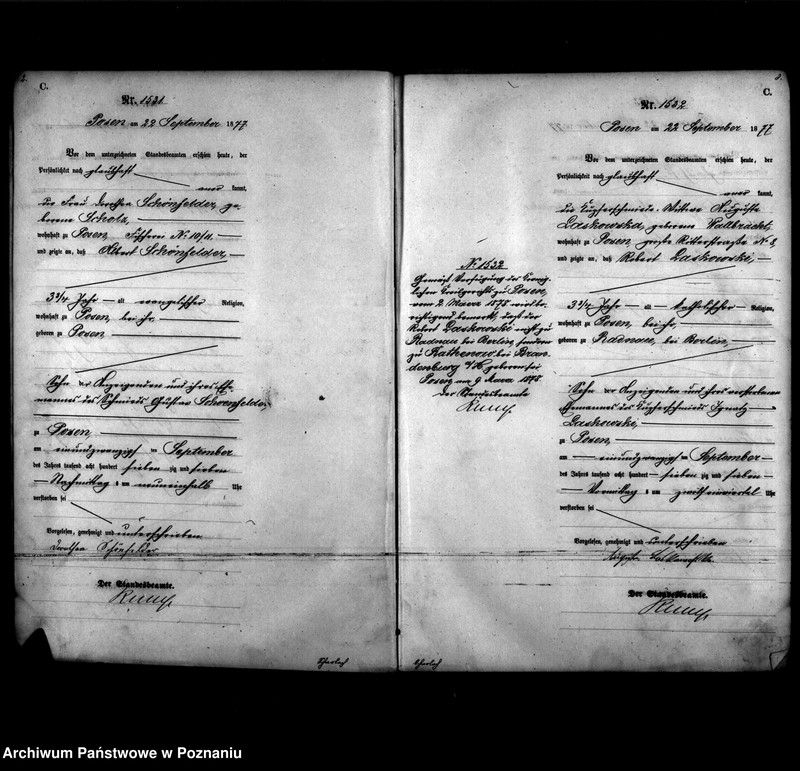 2.
C.
Nr. 1531
Posen am 22 September 1877
Vor dem unterzeichneten Standesbeamten erschien heute, der
Persönlichkeit nach glaubhaft
kannt,
die Frau Dorothea Schönfelder, ge-
borene Scholz,
wohnhaft zu Posen, Fischerei No 10/11.
und zeigte an, daß Albert Schönfelder,
3 3/4 Jahr alt evangelischer Religion,
wohnhaft zu Posen, bei ihr,
geboren zu Posen,
Sohn der Anzeigenden und ihres Ehe-
mannes des Schmieds Gustav Schoenfelder,
zu Posen,
am einundzwanzigsten September
des Jahres tausend acht hundert sieben zig und sieben
Nachmittag s um neuneinhalb Uhr
verstorben sei
Vorgelesen, genehmigt und unterschrieben
Dorothea Schönfelder
Der Standesbeamte.
3.
C.
Nr. 1532
Posen am 22 September 1877
Vor dem unterzeichneten Standesbeamten erschien heute, der
Persönlichkeit nach glaubhaft
kannt,
die Kupferschmieds-Wittwe Auguste
Laskowska, geborene Wallbracht,
wohnhaft zu Posen, große Ritterstraße No 8,
und zeigte an, daß Robert Laskowski,
3 3/4 Jahr alt katholischer Religion,
wohnhaft zu Posen, bei ihr,
geboren zu Radnau, bei Berlin,
Sohn der Anzeigenden und ihres verstorbenen
Ehemannes des Kupferschmieds Ignatz
Laskowski,
zu Posen,
am einundzwanzigsten September
des Jahres tausend acht hundert sieben zig und sieben
Vormittag s um Uhr
verstorben sei
Vorgelesen, genehmigt und unterschrieben
Auguste
Der Standesbeamte.
No 1532
Gemäß Verfügung des Königlichen
Kreisgerichts zu Posen,
vom 2. Maerz 1878 wird be-
richtigend bemerkt, daß der
Robert Laskowski nicht zu
Radnau bei Berlin, sondern
zu Rathenow bei Bran-
denburg a/H geboren sei
Posen am 9 Maerz 1878
der Standesbeamte
Archiwum Państwowe w Poznaniu